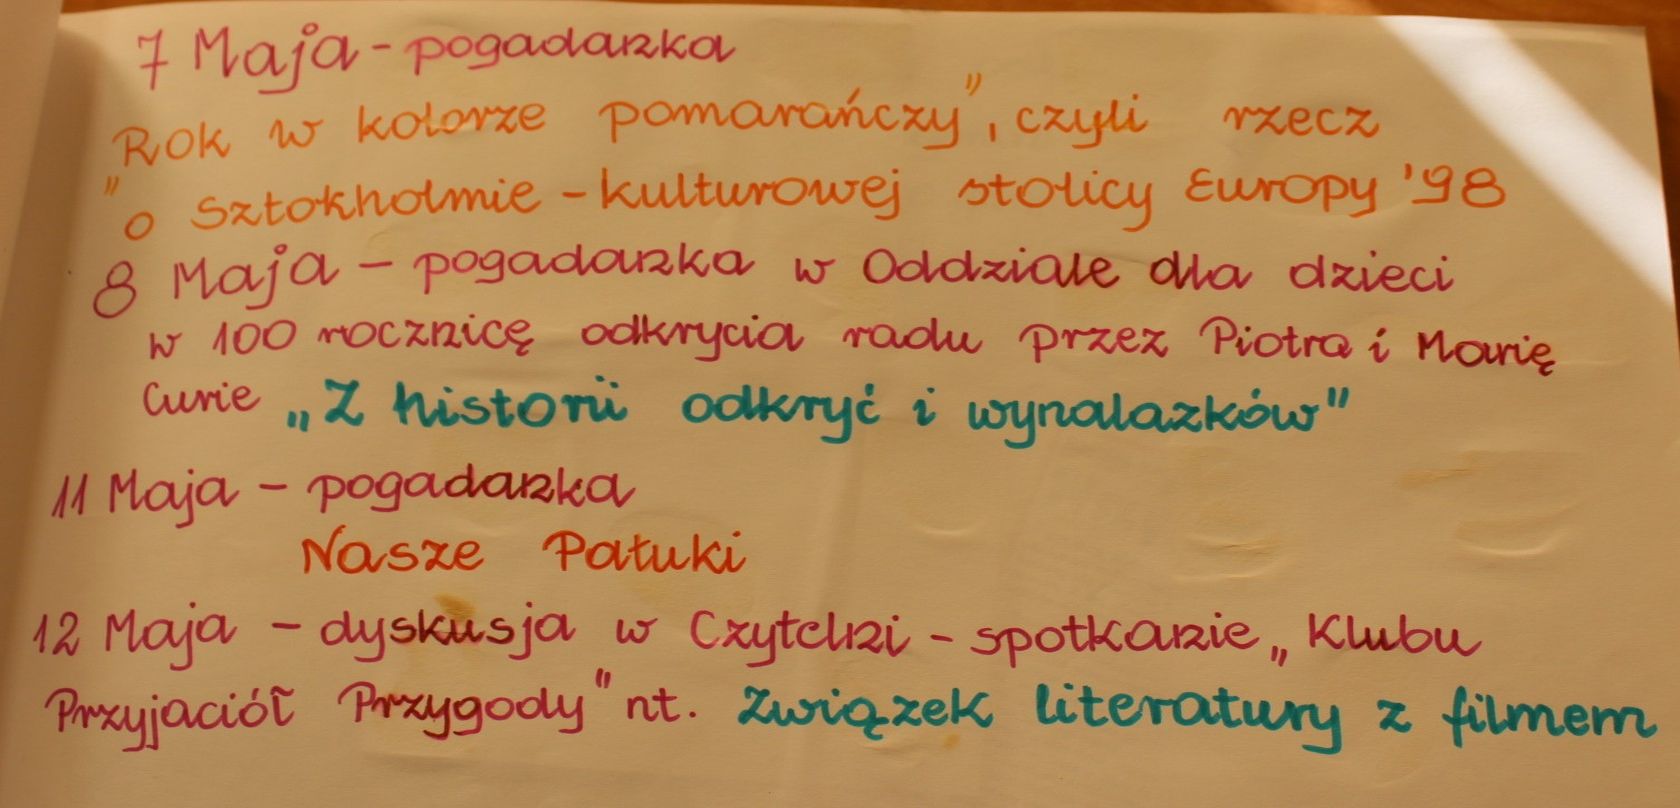 7 Maja - pogadanka
"Rok w kolorze pomarańczy", czyli rzecz
o Sztokholmie - kulturowej stolicy Europy '98
8 Maja - pogadanka w Oddziale dla dzieci
w 100 rocznicę odkrycia radu przez Piotra i Marię
Curie „Z historii odkryć i wynalazków"
11 Maja - pogadanka
Nasze Pałuki
12 Maja - dyskusja w Czytelni - spotkanie „Klubu
Przyjaciół Przygody" nt. Związek literatury z filmem